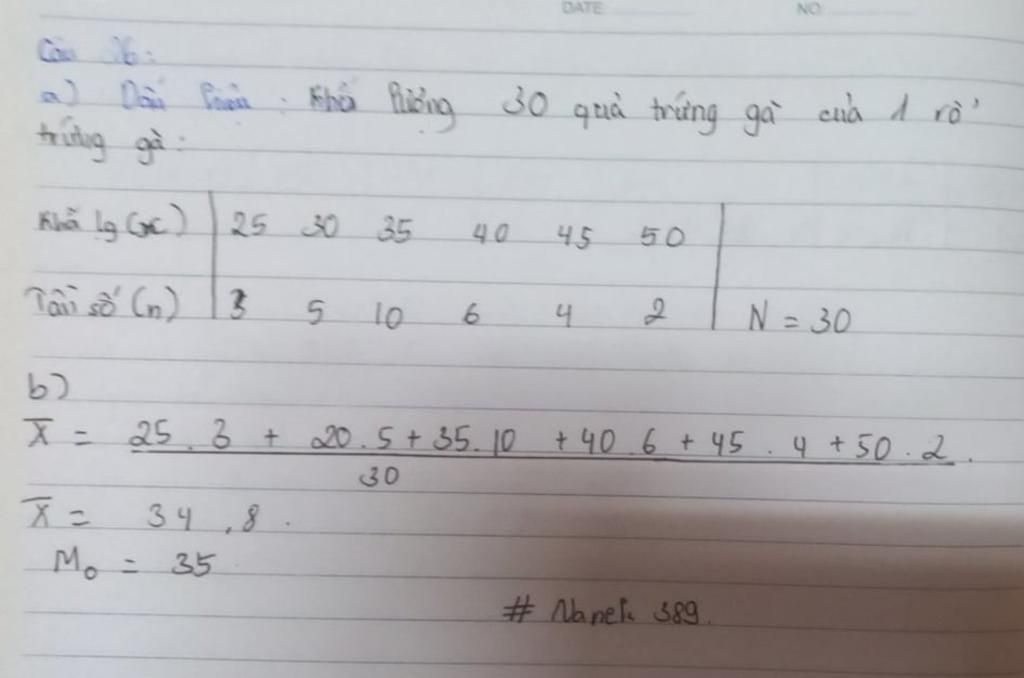 DATE NO
Câu 16:
a) Dấu hiệu: Khối lượng 30 quả trứng gà của 1 rổ
trứng gà:
Khố lg (x) 25 30 35 40 45 50
Tần số (n) 3 5 10 6 4 2 N = 30
b)
X̄ = 25 . 3 + 20 . 5 + 35 . 10 + 40 . 6 + 45 . 4 + 50 . 2 .
30
X̄ = 34,8 .
M₀ = 35
# 389.